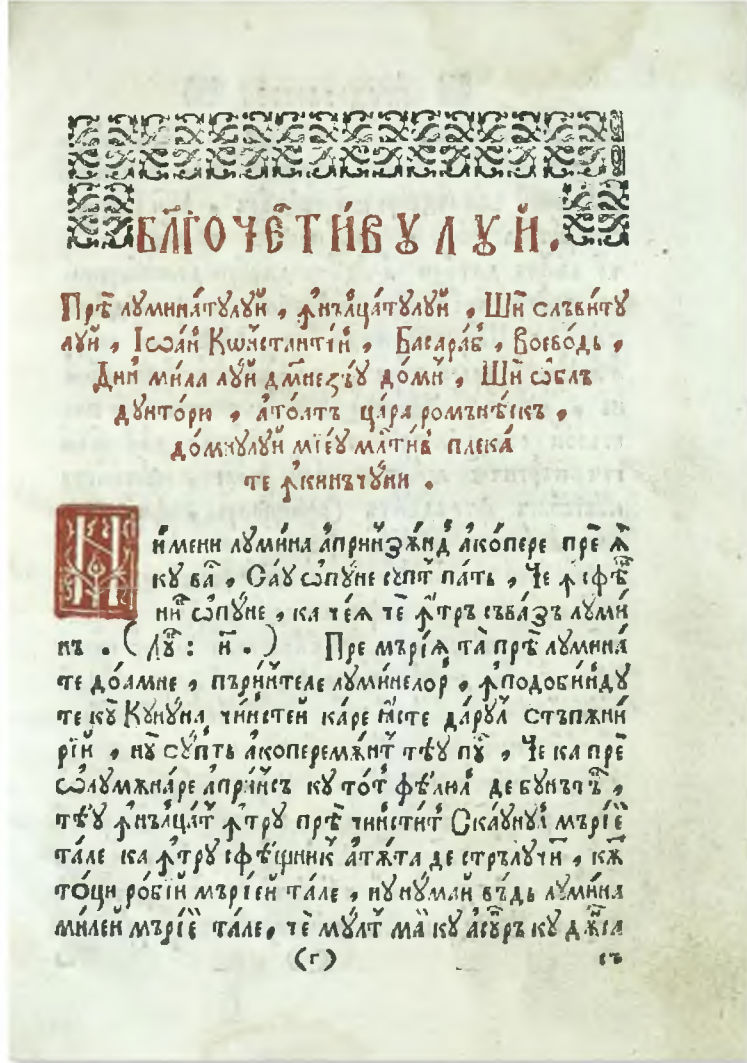 БЛ҃ГОЧЕⷭ҇ТИ́ВꙊЛꙊЙ.
Преⷧ҇ лꙋмина́тꙋлꙋй , ꙟнълца́тꙋлꙋй , Шѝ слъви́тꙋ
лꙋй , Іѡа́н Кѡнстантін , Басара́б , Воево́дь ,
Дин мила лꙋй дм҃незъꙋ до́мн , Шѝ ѡблъ
дꙋито́рю , ато́атъ ца́ра ромънѣ́скъ ,
до́мнꙋлꙋй мїеꙋ мл҃тив плека́
те ꙟкинъчю́ни .
Нимени лꙋмина апринзжнд акопере пре ꙗ
кꙋ ва , Саꙋ ѡпꙋне сꙋпт пать , Че ꙟ сфѣ
ник ѡпꙋне , ка че́ѧ че ꙟтръ съвазъ лꙋми
нъ . ( Лꙋ : и . ) Пре мъріѧ та пре лꙋмина
те до́амне , пъринтеле лꙋминелор , ꙟподобиндꙋ
те кꙋ Кꙋнꙋна чинстей каре ꙗсте дарꙋл стъпжни
рїй , нꙋ сꙋпть акоперемжнт тъꙋ пꙋ , Че ка пре
ѡ лꙋмжнаре апринсъ кꙋ то́т фѣлюл де бꙋнътъ ,
тъꙋ ꙟнълцат ꙟтрꙋ пре чинстит Скаꙋнꙋл мъріе
тале ка ꙟтрꙋ сфѣщник атѫта де стрълꙋчи , кѫ
то́ци ро́бій мъріей тале , нꙋ нꙋмай въдь лꙋмина
милей мъріе тале, че мꙋлт ма кꙋ асꙋръ кꙋ дѫнса
(г) съ